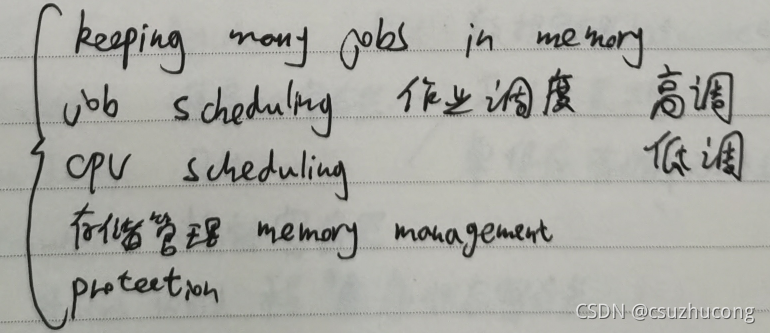 keeping many jobs in memory
job scheduling 作业调度 高调
CPU scheduling 低调
存储管理 memory management
protection
CSDN @csuzhucong